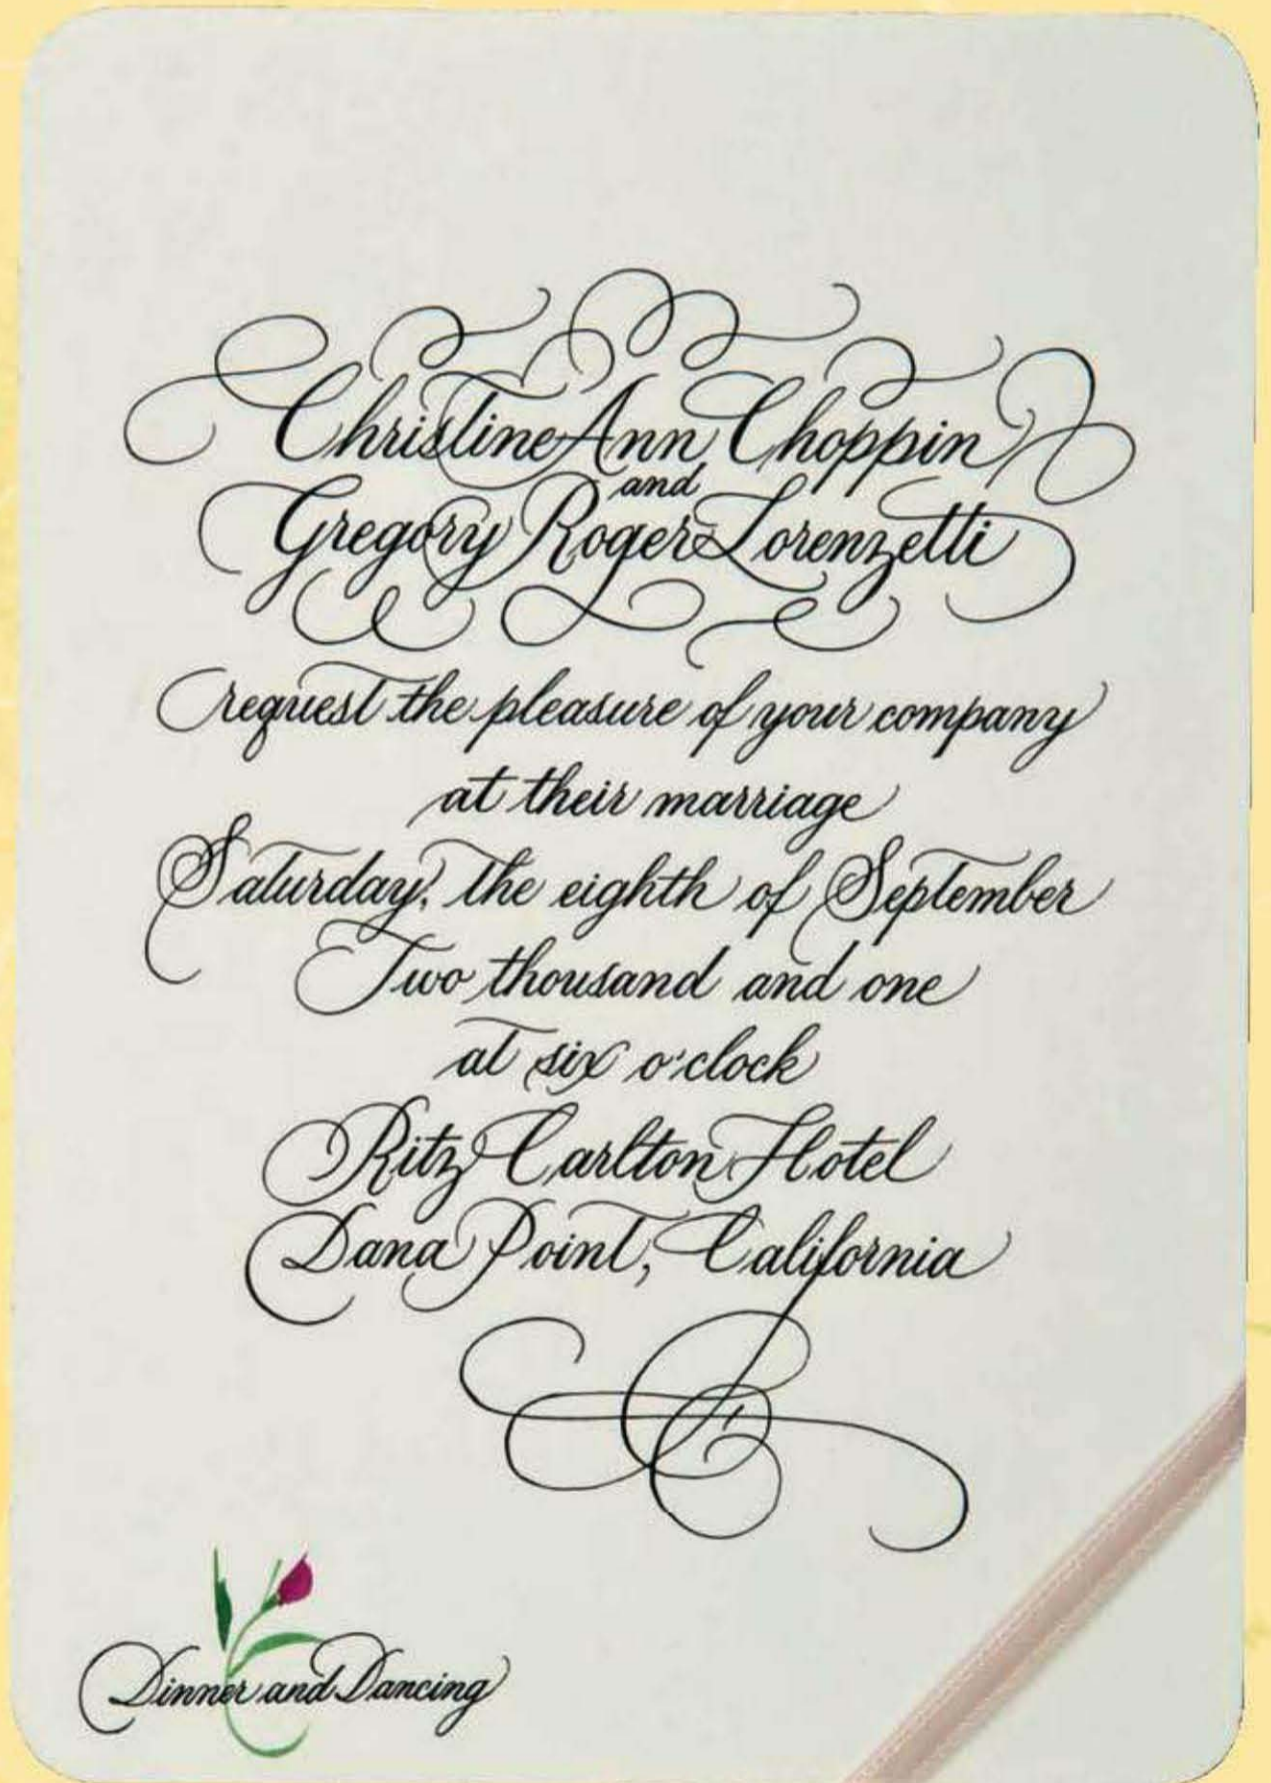 Christine Ann Choppin
and
Gregory Roger Lorenzetti
request the pleasure of your company
at their marriage
Saturday, the eighth of September
Two thousand and one
at six o'clock
Ritz Carlton Hotel
Dana Point, California
Dinner and Dancing